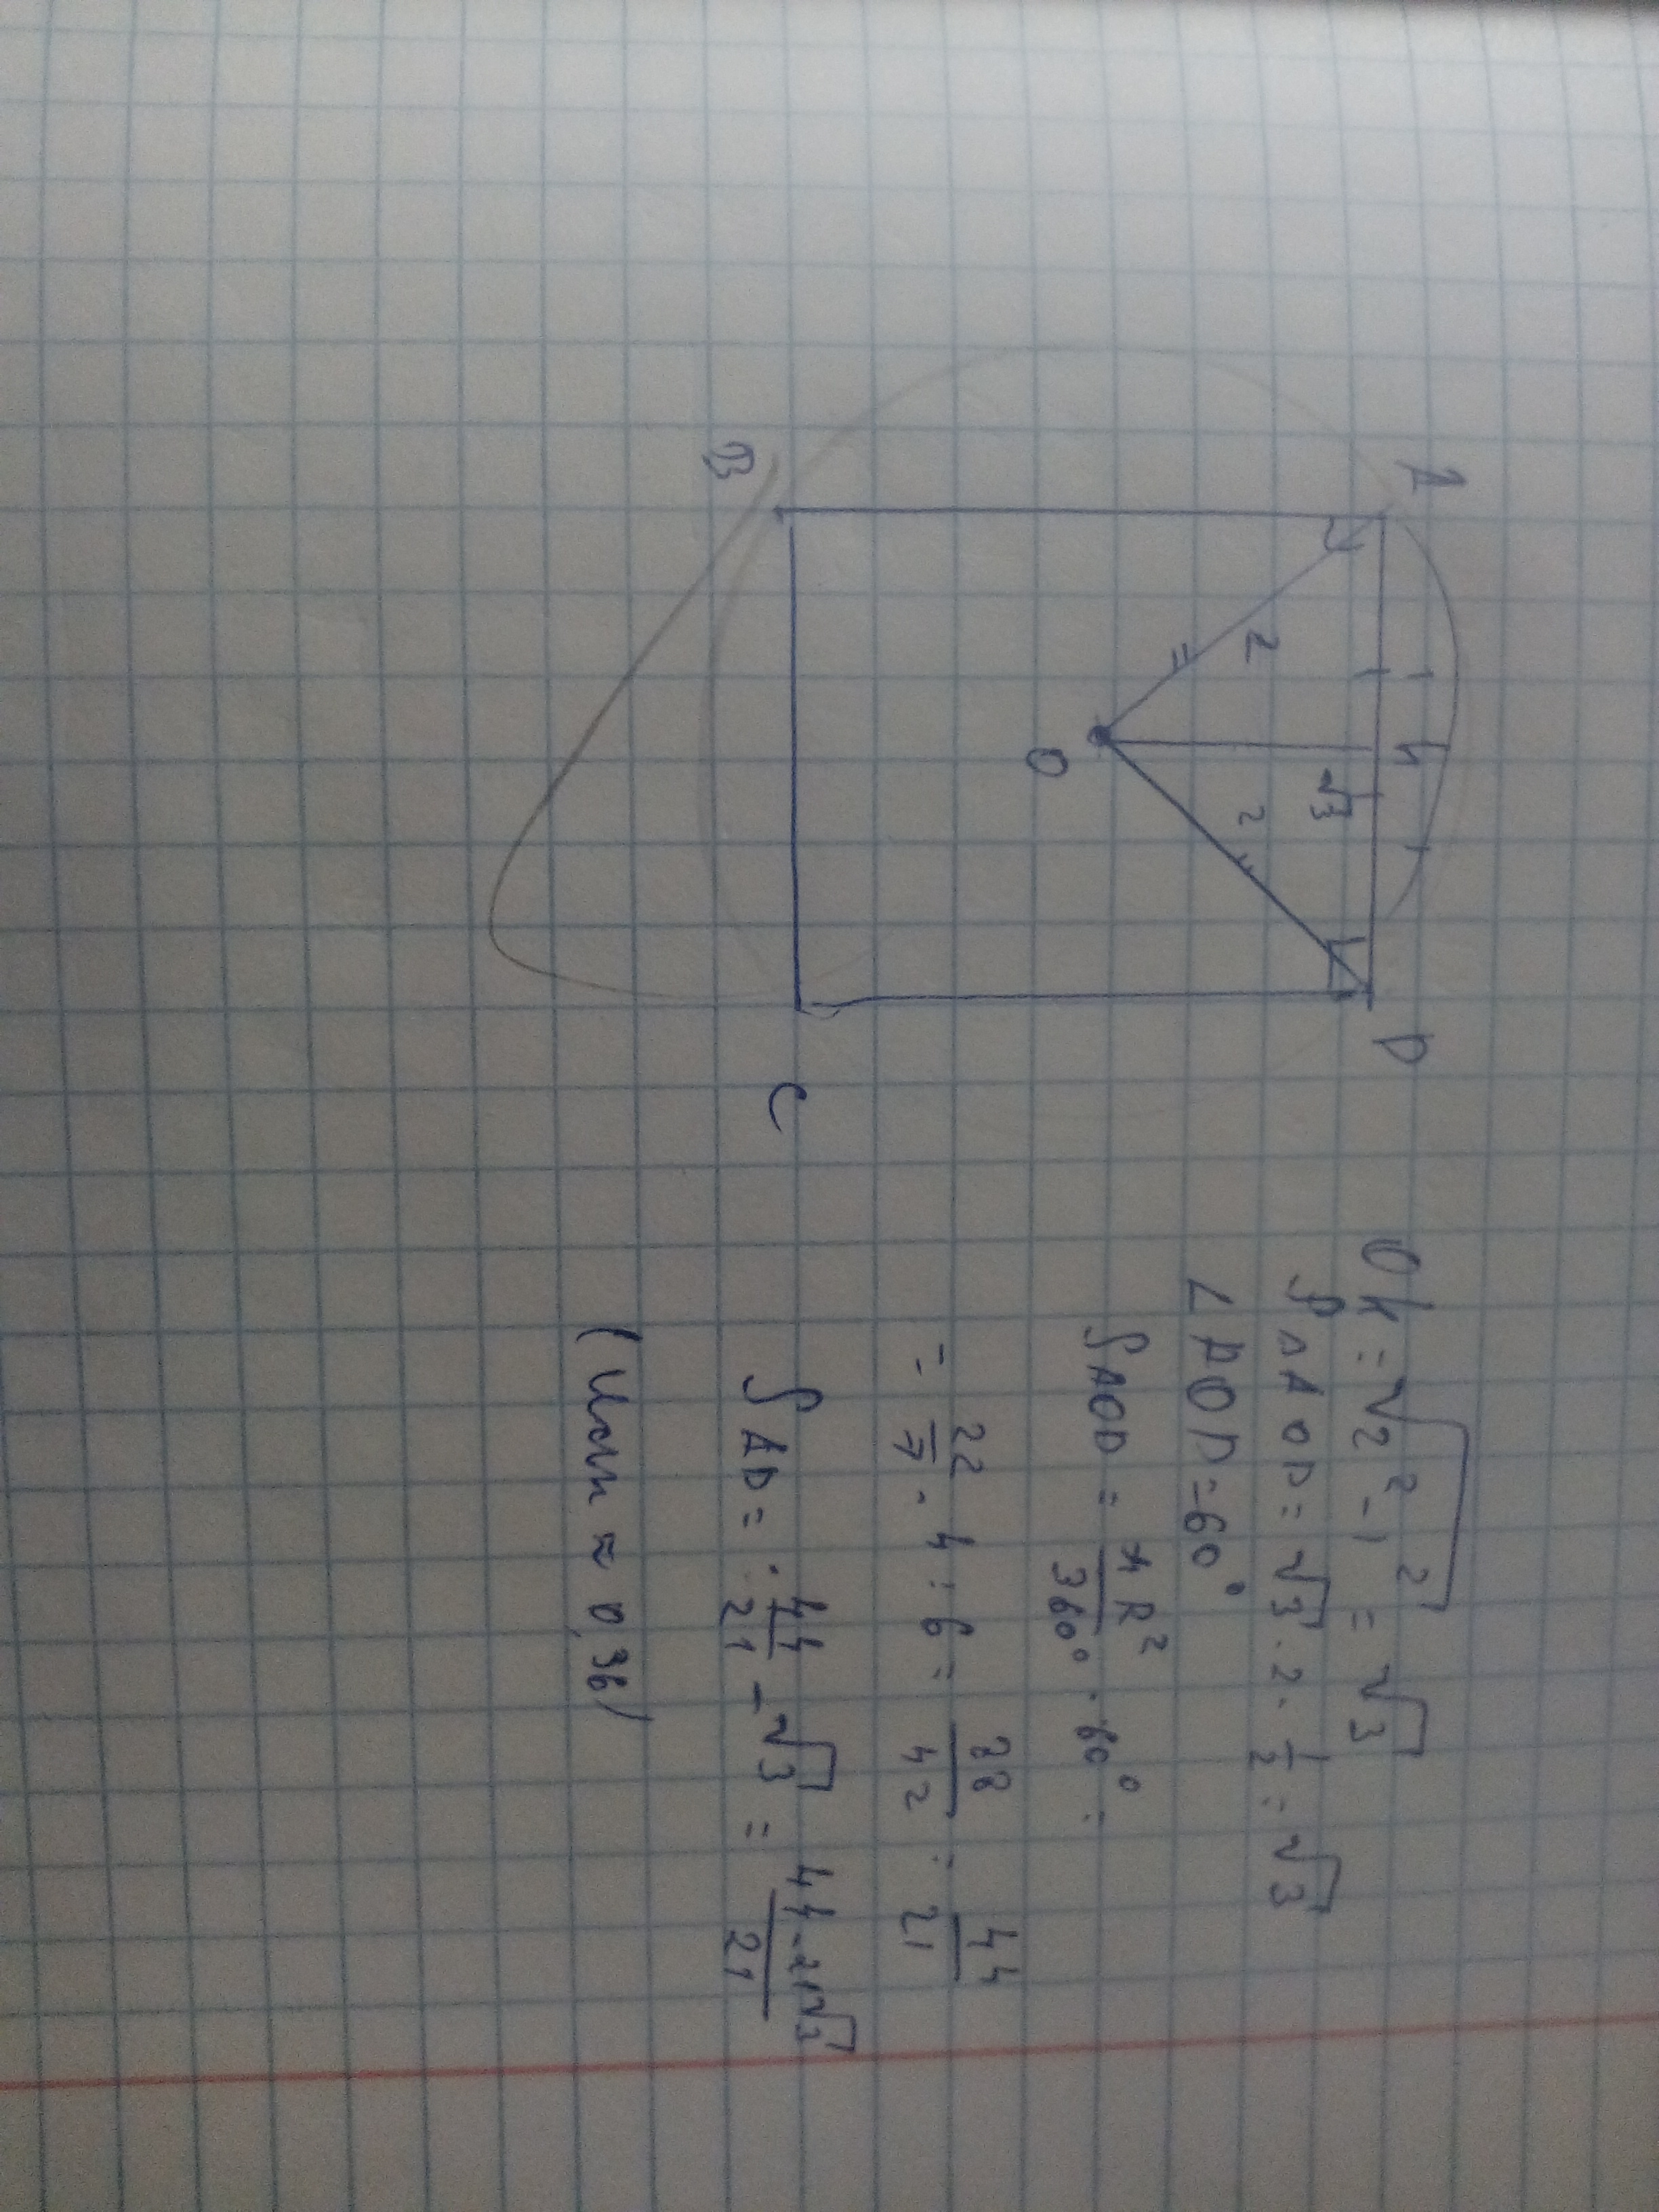 A
B
C
D
O
2
2
√3
H
OH = √2² - 1² = √3
S△AOD = √3 · 2 · 1/2 = √3
∠AOD = 60°
SAOD = πR²/360° · 60° =
= 22/7 · 4 : 6 = 88/42 = 44/21
SAD = 44/21 - √3 = 44-21√3/21
(или ≈ 0,36)